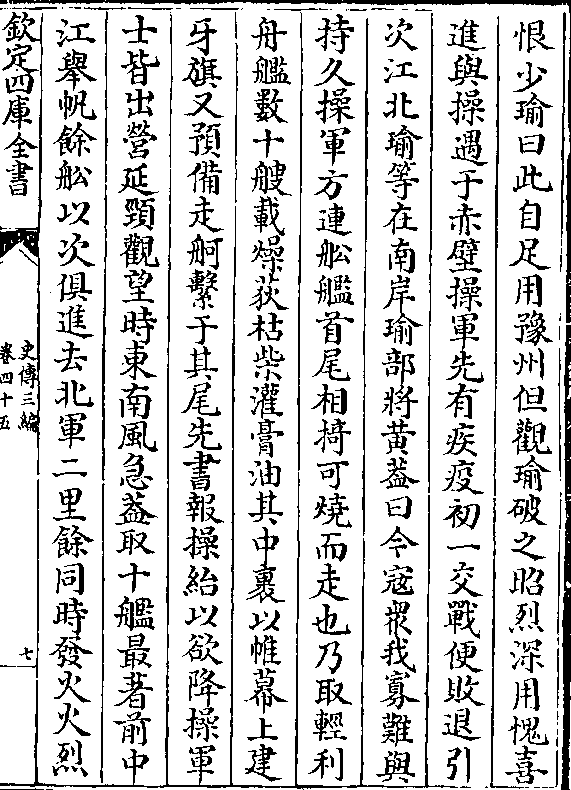 恨少瑜曰此自足用豫州但觀瑜破之昭烈深用愧喜
進與操遇于赤壁操軍先有疾疫初一交戰便敗退引
次江北瑜等在南岸瑜部將黃蓋曰今寇衆我寡難與
持久操軍方連舩艦首尾相掎可燒而走也乃取輕利
舟艦數十艘載燥荻枯柴灌膏油其中裹以帷幕上建
牙旗又預備走舸繫于其尾先書報操紿以欲降操軍
士皆出營延頸觀望時東南風急蓋取十艦最著前中
江舉帆餘舩以次俱進去北軍二里餘同時發火火烈
欽定四庫全書
史傳三編
卷四十五
七